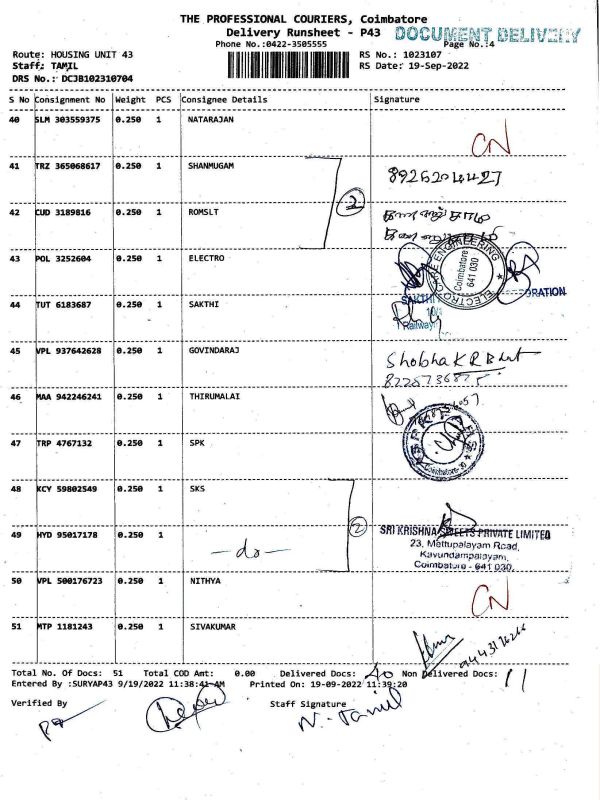 THE PROFESSIONAL COURIERS, Coimbatore
Delivery Runsheet - P43
DOCUMENT DELIVERY
Phone No.:0422-3505555
Page No.:4
Route: HOUSING UNIT 43
RS No.: 1023107
Staff: TAMIL
RS Date: 19-Sep-2022
DRS No.: DCJB102310704
S No Consignment No Weight PCS Consignee Details Signature
40 SLM 303559375 0.250 1 NATARAJAN
CN
41 TRZ 365068617 0.250 1 SHANMUGAM
2
42 CUD 3189816 0.250 1 ROMSLT
43 POL 3252604 0.250 1 ELECTRO
ENGINEERING
Coimbatore
641 030
ELECTRO
44 TUT 6183687 0.250 1 SAKTHI
SAKTHI
Railway
45 VPL 937642628 0.250 1 GOVINDARAJ
Shobha K R Bhat
46 MAA 942246241 0.250 1 THIRUMALAI
47 TRP 4767132 0.250 1 SPK
48 KCY 59802549 0.250 1 SKS
2
49 HYD 95017178 0.250 1 -do-
SRI KRISHNA SWEETS PRIVATE LIMITED
23, Mettupalayam Road,
Kavundampalayam,
Coimbatore - 641 030.
50 VPL 500176723 0.250 1 NITHYA
CN
51 MTP 1181243 0.250 1 SIVAKUMAR
Total No. Of Docs: 51 Total COD Amt: 0.00 Delivered Docs: 40 Non Delivered Docs: 11
Entered By :SURYAP43 9/19/2022 11:38:41 AM Printed On: 19-09-2022 11:39:20
Verified By
Staff Signature
N. Tamil